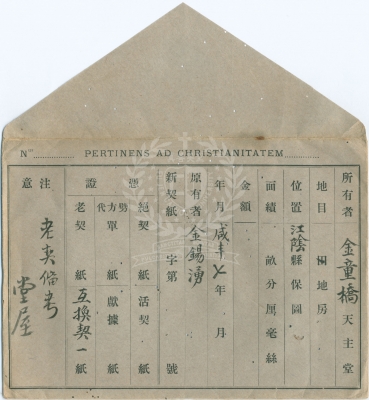 Nᵘˢ PERTINENS AD CHRISTIANITATEM
所有者 金童橋 天主堂
地目 田地房
位置 江陰縣保圖
面積 畝分厘毫絲
金額
年月 咸丰七年 月
原有者 金錫湧
新契紙 字第 號
憑證
絕契 紙 活契 紙
代方單 紙 獻據 紙
老契 紙 互換契一紙
注意
老夾備考
堂屋